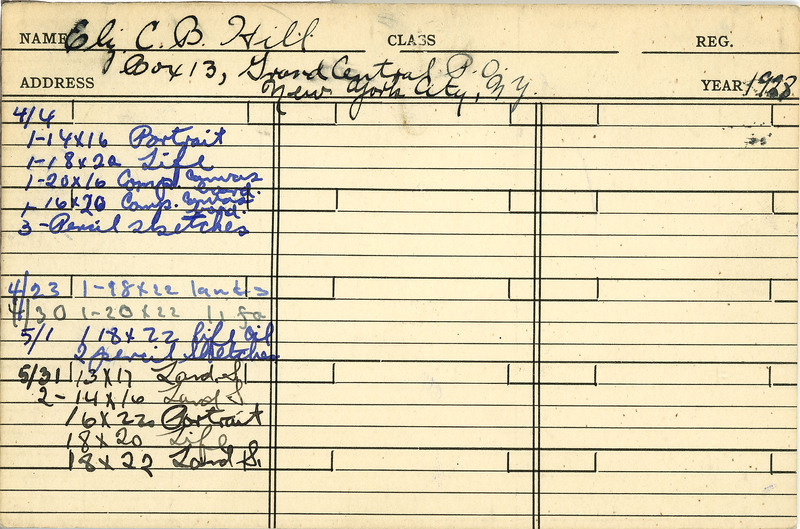 NAME Eliz C. B. Hill CLASS REG.
Box 13, Grand Central P.O.
ADDRESS New York City, N.Y. YEAR 1928
4/4
1-14x16 Portrait
1-18x20 Life
1-20x16 Comp. Canvas board.
1-16x20 Comp. Canvas board.
3-Pencil sketches
4/23 1-18x22 lands
4/30 1-20x22 life
5/1 1 18x22 life oil
2 pencil sketches
5/31 13x17 Land S.
2-14x16 Land S
16x220 Portrait
18x20 Life
18x22 Land S.